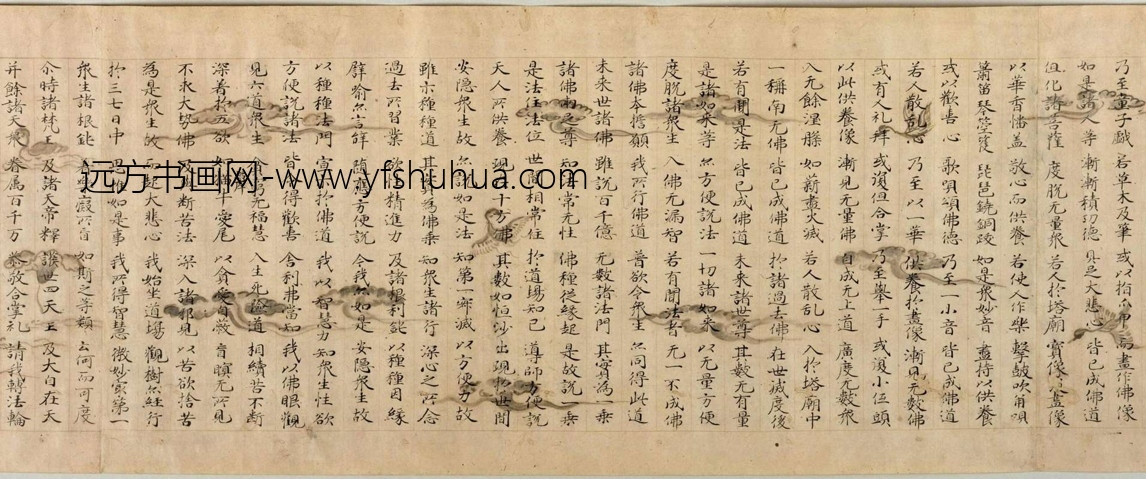 乃至童子戲 若草木及筆 或以指爪甲 而畫作佛像
如是諸人等 漸漸積功德 具足大悲心 皆已成佛道
但化諸菩薩 度脫无量衆 若人於塔廟 寳像及畫像
以華香幡盖 敬心而供養 若使人作樂 擊皷吹角唄
簫笛琴箜篌 琵琶鐃銅鈸 如是衆妙音 盡持以供養
或以歡喜心 歌唄頌佛德 乃至一小音 皆已成佛道
若人散乱心 乃至以一華 供養於畫像 漸見无數佛
或有人礼拜 或復但合掌 乃至舉一手 或復小伍頭
以此供養像 漸見无量佛 自成无上道 廣度无數衆
入无餘涅槃 如薪盡火滅 若人散乱心 入於塔廟中
一稱南无佛 皆已成佛道 於諸過去佛 在世或度後
若有聞是法 皆已成佛道 未来諸世尊 其數无有量
是諸如来等 亦方便說法 一切諸如来 以无量方便
度脫諸衆生 入佛无漏智 若有聞法者 无一不成佛
諸佛本擔願 我所行佛道 普欲令衆生 亦同得此道
未来世諸佛 雖說百千億 无數諸法門 其實為一乗
諸佛兩足尊 知法常无性 佛種従縁起 是故說一乗
是法住法位 世間相常住 於道場知已 導師方便說
天人所供養 現在十方佛 其數如恒沙 出現於世間
安隠衆生故 亦說如是法 知第一寂滅 以方便力故
雖示種種道 其實為佛乗 知衆生諸行 深心之所念
過去所習業 欲性精進力 及諸根利鈍 以種種因縁
譬喻亦言辞 随應方便說 今我亦如是 安隠衆生故
以種種法門 宣示於佛道 我以智慧力 知衆生性欲
方便說諸法 皆令得歡喜 舍利弗當知 我以佛眼觀
見六道衆生 貧窮无福慧 入生死險道 相續苦不断
深着於五欲 如犛牛愛尾 以貪愛自蔽 盲瞑无所見
不求大势佛 及與断苦法 深入諸邪見 以苦欲捨苦
為是衆生故 而起大悲心 我始坐道場 觀樹亦経行
於三七日中 思惟如是事 我所得智慧 微妙冣第一
衆生諸根鈍 着樂癡所盲 如斯之等類 云何而可度
尒時諸梵王 及諸天帝釋 護世四天王 及大自在天
并餘諸天衆 眷属百千万 恭敬合掌礼 請我轉法輪
远方书画网-www.yfshuhua.com